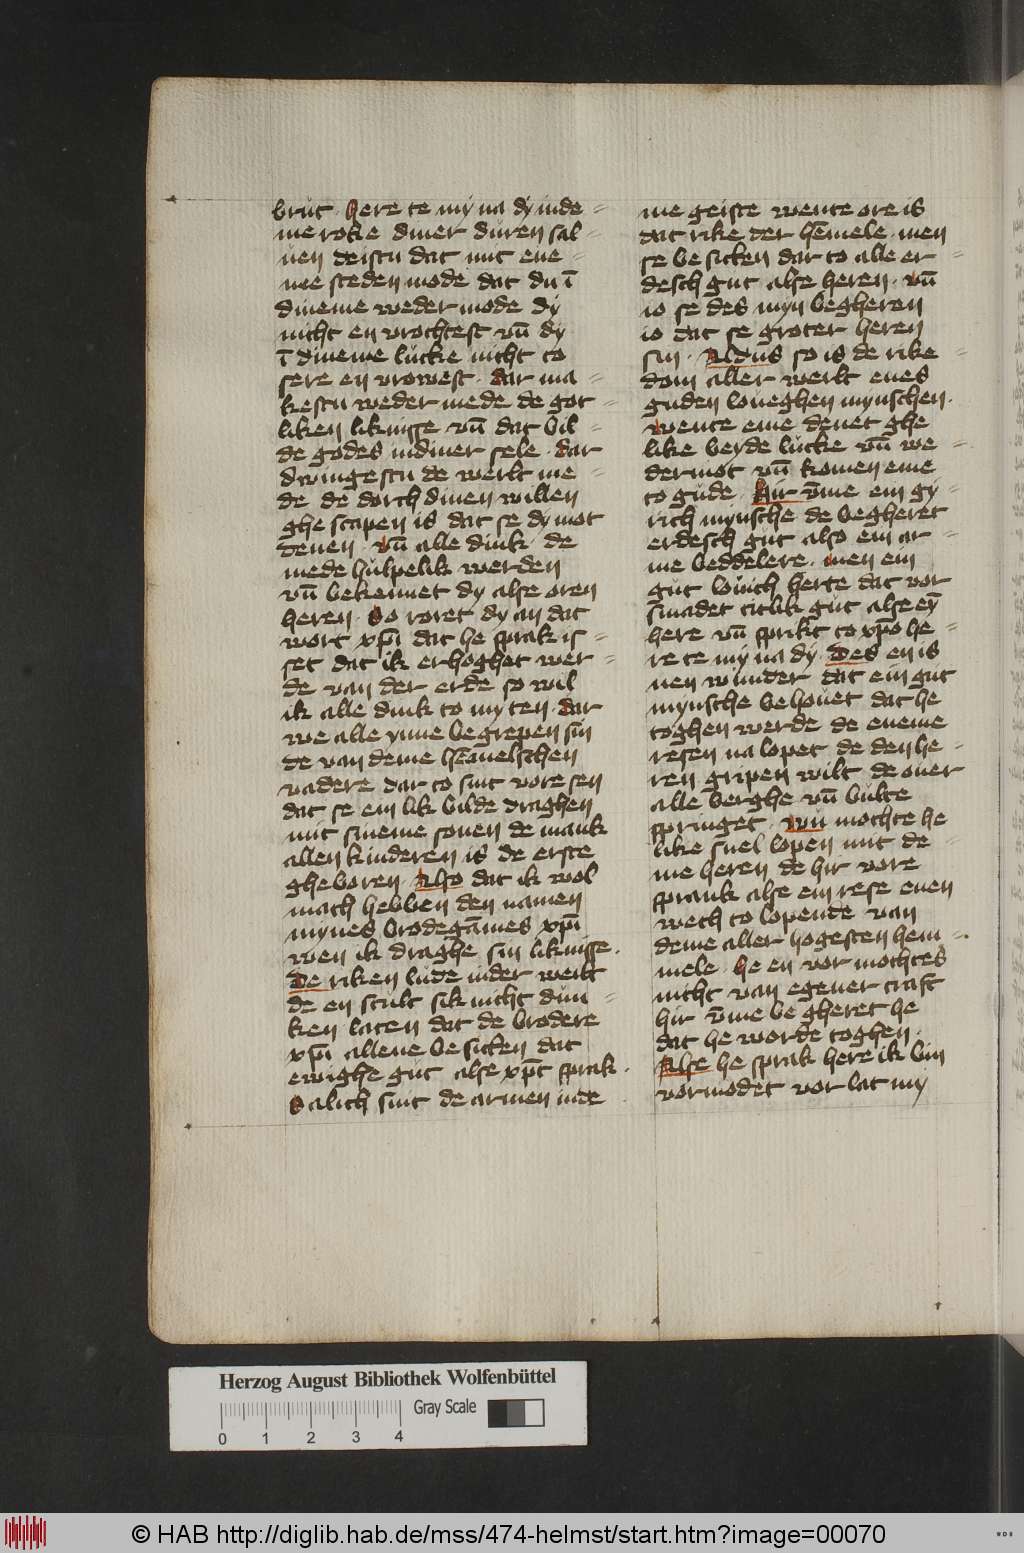 brut · here te my na dy in de⸗
me roke diner duren sal⸗
uen deistu dat mit ene⸗
me steden mode dat du ī
dineme wedermode dy
nicht en vrochtest vn̄ dy
ī dineme lucke nicht to
sere en vrowest · dar ma⸗
kestu weder mede de got⸗
liken liknisse vn̄ dat bil⸗
de godes in diner sele · dar
dwingestu de werlt me⸗
de de dorch dinen willen
ghescapen is dat se dy mot
denen · vn̄ alle dink · de
mede hulpelik werden
vn̄ bekennet dy alse oren
heren · So roret dy an dat
wort xp̄i dat he sprak is⸗
set dat ik erhoghet wer⸗
de van der erde so wil
ik alle dink to my ten · dar
we alle ynne begrepen sin
de van deme hēmelschen
vadere dar to sint vore sen
dat se ein lik bilde draghen
mit sineme sonen de mank
allen kinderen is de erste
gheboren · Also dat ik wol
mach hebben den namen
mynes brodegāmes xp̄i
wen ik draghe sin liknisse ·
De riken lude in der werlt
de en scult sik nicht dun⸗
ken laten dat de brodere
xp̄i allene besitten dat
ewighe gut alse xp̄c sprak ·
Salich sint de armen in de
me geiste wente ore is
dat rike der hēmele · men
se besitten dar to alle er⸗
desch gut alse heren · vn̄
io se des myn begheren
io dat se groter heren
sin · Aldus so is de rike⸗
dom aller werlt enes
guden loueghen mynschen ·
wente eme denet ghe
like beyde lucke vn̄ we⸗
dermot vn̄ komen eme
to gude · Hir v̄me ein gy⸗
rich mynsche de begheret
erdesch gut also ein ar⸗
me beddelere · men ein
gut louich herte dat vor
smadet titlik gut alse ey̅
here vn̄ sprikt to xp̄o he⸗
re te my na dy · Des en is
nen wunder dat ein gut
mynsche behouet dat he
toghen werde de eneme
resen na lopet de den he⸗
ren gripen wilt de ouer
alle berghe vn̄ bulte
springet · wu mochte he
like snel lopen mit de⸗
me heren de hir vore
sprank alse ein rese enen
wech to lopende van
deme aller hogesten hem⸗
mele · he en vor mochtes
nicht van egener craft
hir v̄me begheret he
dat he werde toghen ·
Alse he sprak here ik bin
vormodet vor lat my
Herzog August Bibliothek Wolfenbüttel
Gray Scale
0 1 2 3 4
© HAB http://diglib.hab.de/mss/474-helmst/start.htm?image=00070